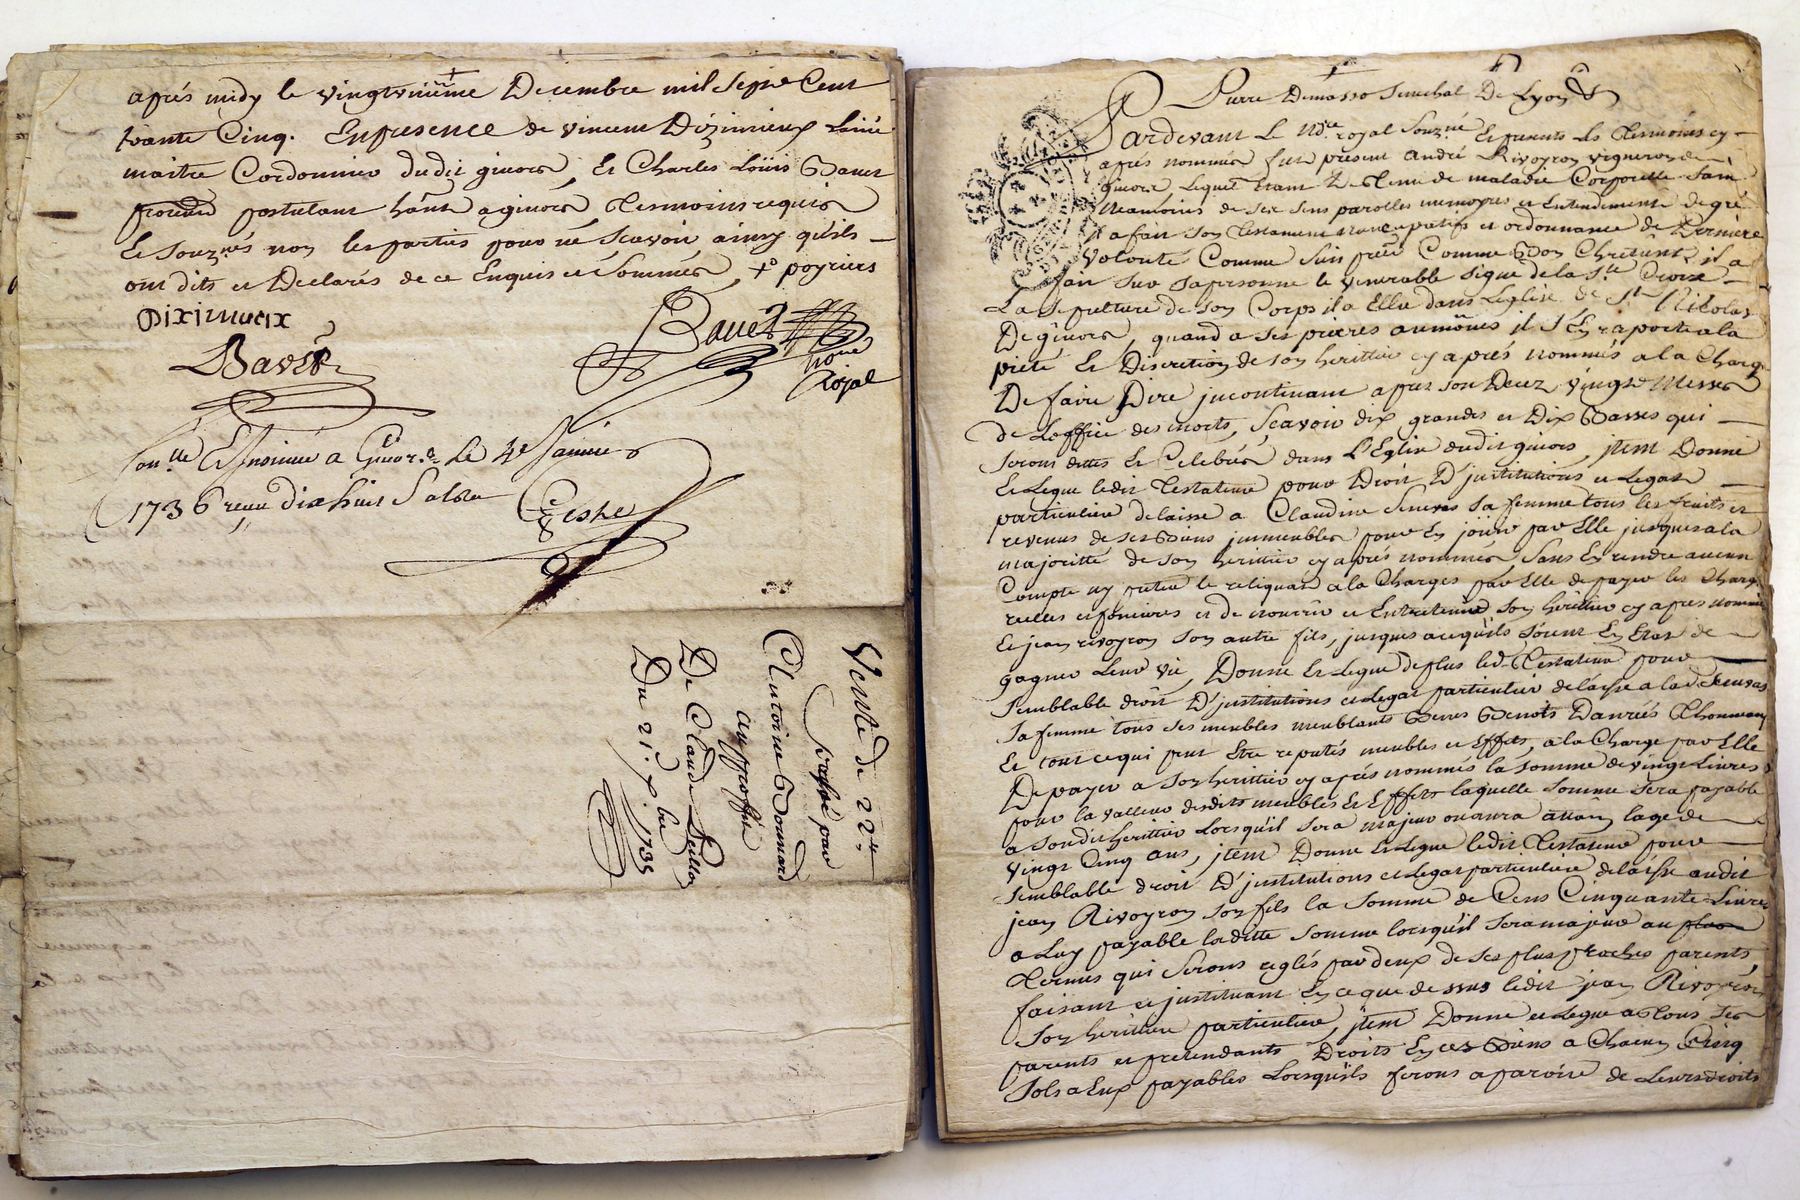 après midy le vingtunième Decembre mil sept Cent
trante Cinq. En presence de vincent Dizimieux
maitre Cordonnier dudit givors, Et Charles Loüis Bavet
postulant hânt a givors, tesmoins requis
Et Souz.nés non les parties pour ne Scavoir ainsy qu'ils
ont dits et Declarés de ce Enquis et Sommés,
Diximieux
Bavet
Bavet
Royal
a Givors Le 4e Janvier
1736 reçu dix huit Sols
Vente de 22lt
passé par
Antoine Bonnard
au proffit
De Claude
Du 21e Xbre 1735
Pierre Senechal De Lyon
Pardevant Le Nore. royal Souz.né Et presents Les tesmoins cy
apres nommés fut present andré Rivoyron vigneron de
givors, Lequel Etant Detenu de maladie Corporelle Sain
de ses sens parolles memoyres et Entendement De gré
a fait Son testament nuncupatif et ordonnance de Derniere
Volonté Comme Suit Comme Bon Chretient il a
fait Sur Sa personne le venerable Signe de la Ste. Croix
La Sepulture de Son Corps il a Ellu dans L'Eglise de St. Nicolas
De givors, quand a Ses prieres aumônes il S'En raporte a la
pieté Et Discretion de Son heritier cy après nommés a la Charge
De faire Dire incontinant apres Son Decez vingt Messes
de L'office des morts, Scavoir dix grandes et Dix Basses qui
Seront dittes Et Celebrés dans L'Eglise dudit givors, jtem Donne
Et Legue ledit testateur pour Droit D'justitutions et Legat
particulier delaisse a Claudine Sa femme tous les fruits et
revenus de ses Biens jmmeubles pour En joüir par Elle jusques a la
majoritté de Son heritier cy après nommés Sans En rendre aucun
Compte ny preter le reliquat a la Charges par Elle de payer les Charges
reelles et foncieres et de nourrir et Entretenir Son heritier cy apres nommé
Et jean rivoyron Son autre fils, jusques a ce qu'ils Soient En Etat de
gagner Leur vie, Donne Et Legue de plus led. Testateur pour
Semblable droit D'justitutions et Legat particulier delaisse a lad.
Sa femme tous Ses meubles meublants
Et tout ce qui peut Etre reputés meubles et Effets, a la Charge par Elle
De payer a Son heritier cy après nommés la Somme de vingt Livres
pour la valleur desdits meubles Et Effets laquelle Somme Sera payable
a Son dit heritier Lors qu'il Sera majeur ou aura attain lage de
vingt Cinq ans, jtem Donne Et Legue ledit Testateur pour
Semblable droit D'justitutions et Legat particulier delaisse audit
jean Rivoyron Son fils la Somme de Cent Cinquante Livres
a Luy payable laditte Somme lorsqu'il Sera majeur au
termes qui Seront reglés par deux de Ses plus proches parents,
faisant et justituant En ce que dessus ledit jean Rivoyron
Son heritier particulier, jtem Donne et Legue a Tous Ses
parents et pretendants Droits En ses Biens a Chacun Cinq
Sols a Eux payables Lorsqu'ils feront aparoire de Leurs droits